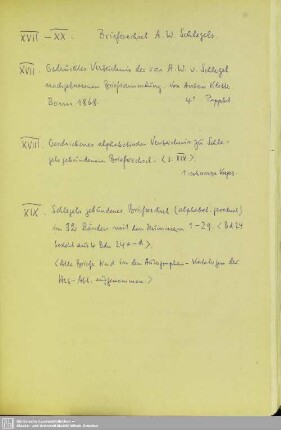 XVII – XX. Briefwechsel A. W. Schlegels.
XVII. Gedrucktes Verzeichnis der von A. W. v. Schlegel
nachgelassenen Briefsammlung. Von Anton Klette.
Bonn 1868. 4° Pappbd
XVIII. Geschriebenes alphabetisches Verzeichnis zu Schle-
gels gebundenem Briefwechsel. < s. XIX >
1 schwarze Kaps.
XIX. Schlegels gebundener Briefwechsel (alphabet. geordnet)
in 32 Bänden mit den Nummern 1–29. < Bd 24
besteht aus 4 Bdn 24 a–d >.
< Alle Briefe sind in den Autographen-Katalogen der
Hss-Abt. aufgenommen >
Sächsische Landesbibliothek –
Staats- und Universitätsbibliothek Dresden